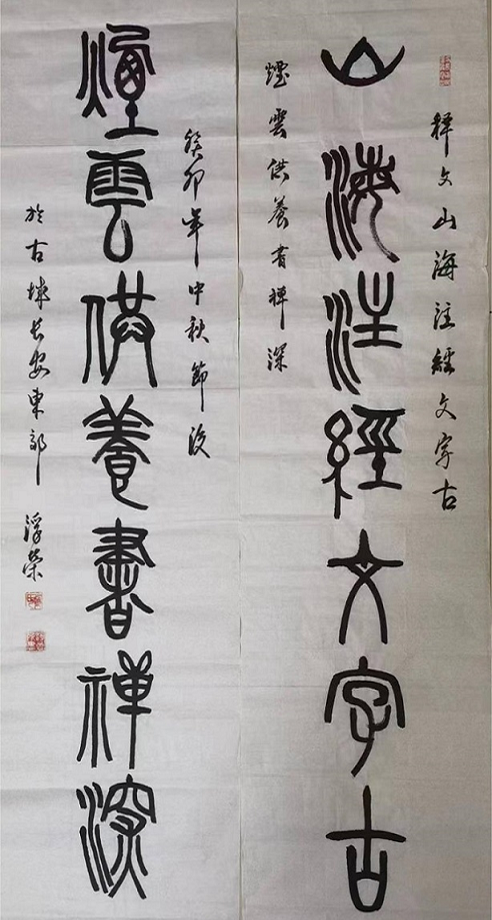 釋文山海注經文字古
山海注經文字古
煙雲供養書禪深
癸卯年中秋節後
煙雲供養書禪深
於古城長安東郭